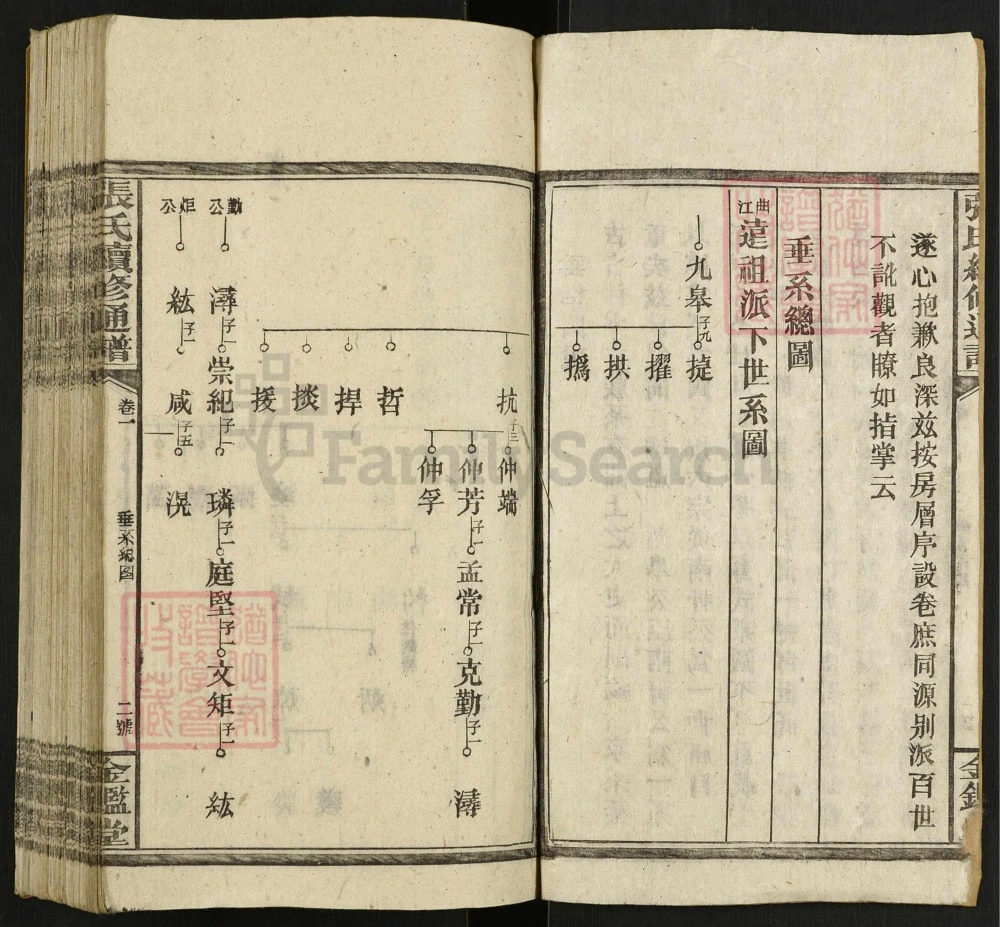 遂心抱歉良深茲按房層序設卷庶同源别派百世
不訛觀者瞭如指掌云
垂系總圖
曲江遠祖派下世系圖
九皋子九
擢
拱
撝
抗子三
仲端
仲芳子一
孟常子一
克勤子一
潯
仲孚
哲
捍
掞
援
勤公
潯子一
崇紀子一
璘子一
庭堅子一
文矩子一
紘
炬公
紘子一
咸子五
滉
張氏續修通譜
卷一
垂系總圖
二號
金鑑堂
FamilySearch